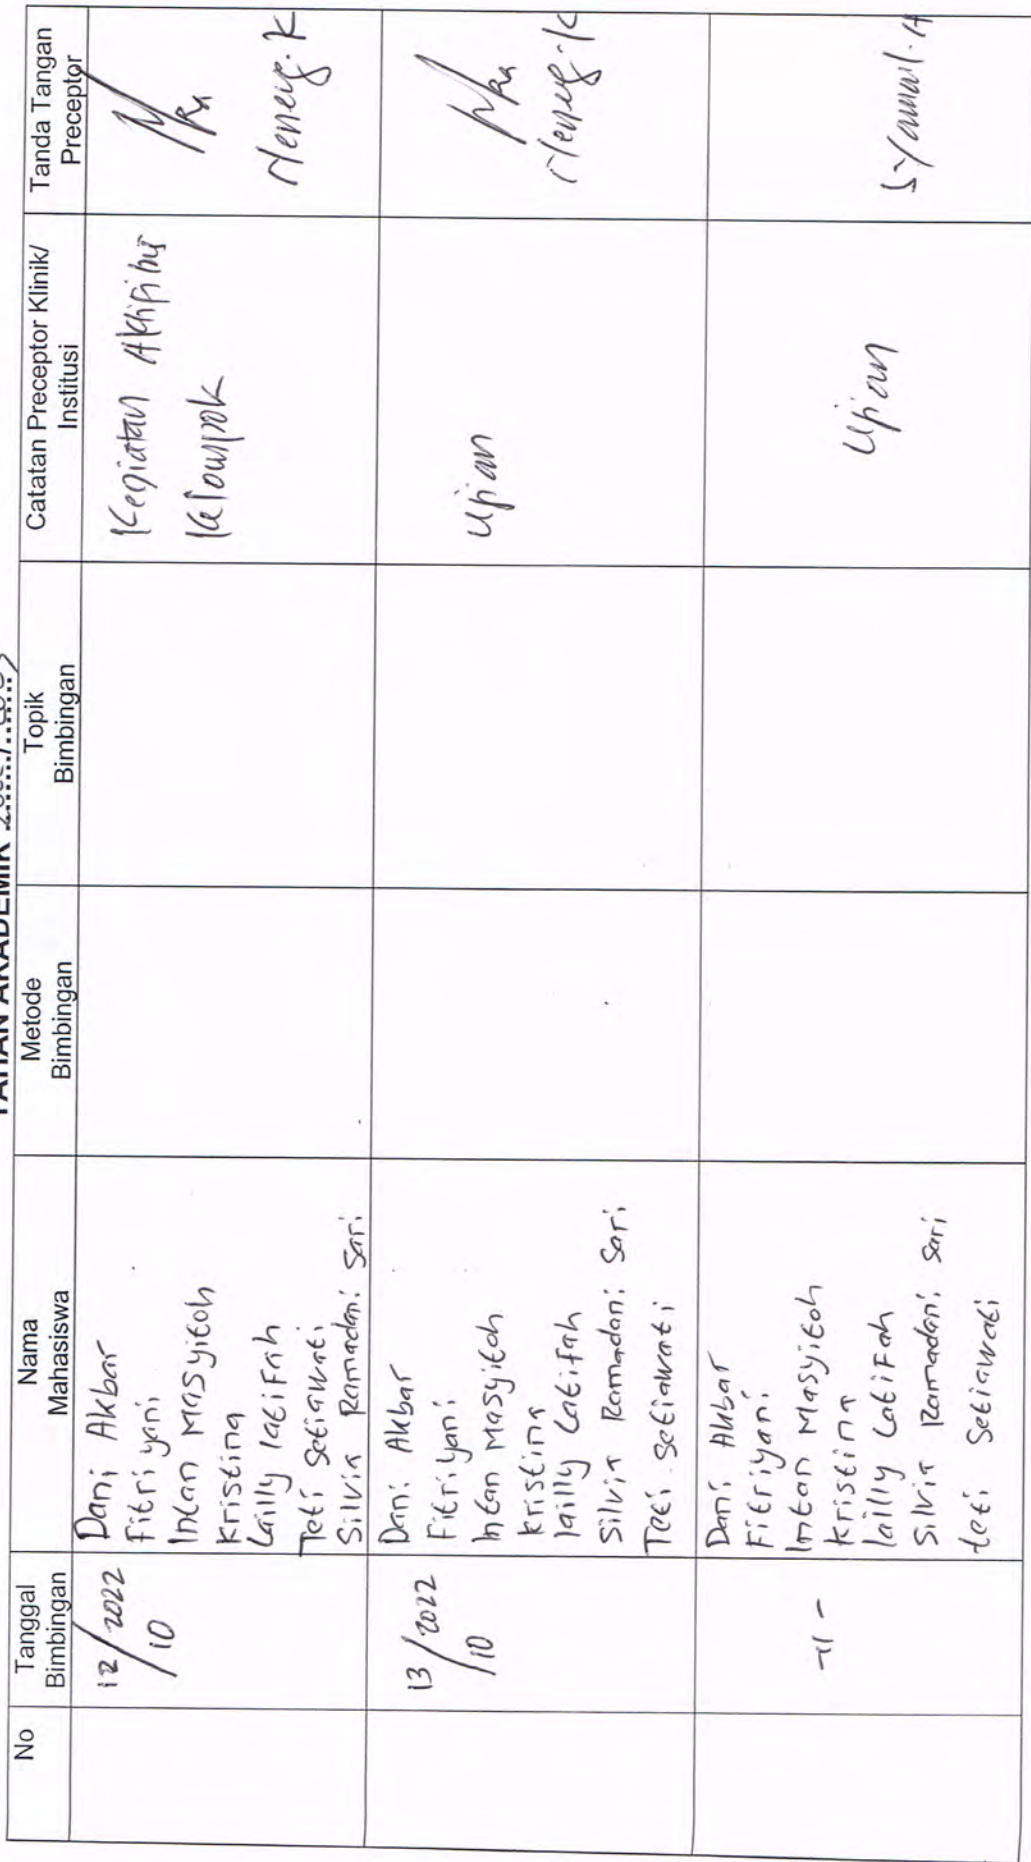 TAHAN AKADEMIK
No
Tanggal
Bimbingan
Nama
Mahasiswa
Metode
Bimbingan
Topik
Bimbingan
Catatan Preceptor Klinik/
Institusi
Tanda Tangan
Preceptor
12/2022
/10
Dani Akbar
Fitriyani
Intan Masyitoh
Kristina
Lailly latifah
Teti Setiawati
Silvia Ramadani Sari
Kegiatan
Kelompok
13/2022
/10
Dani Akbar
Fitriyani
Intan Masyitoh
Kristina
lailly Latifah
Silvia Ramadani Sari
Teti Setiawati
Ujian
-11-
Dani Akbar
Fitriyani
Intan Masyitoh
Kristina
lailly Latifah
Silvia Ramadani Sari
teti Setiawati
Ujian